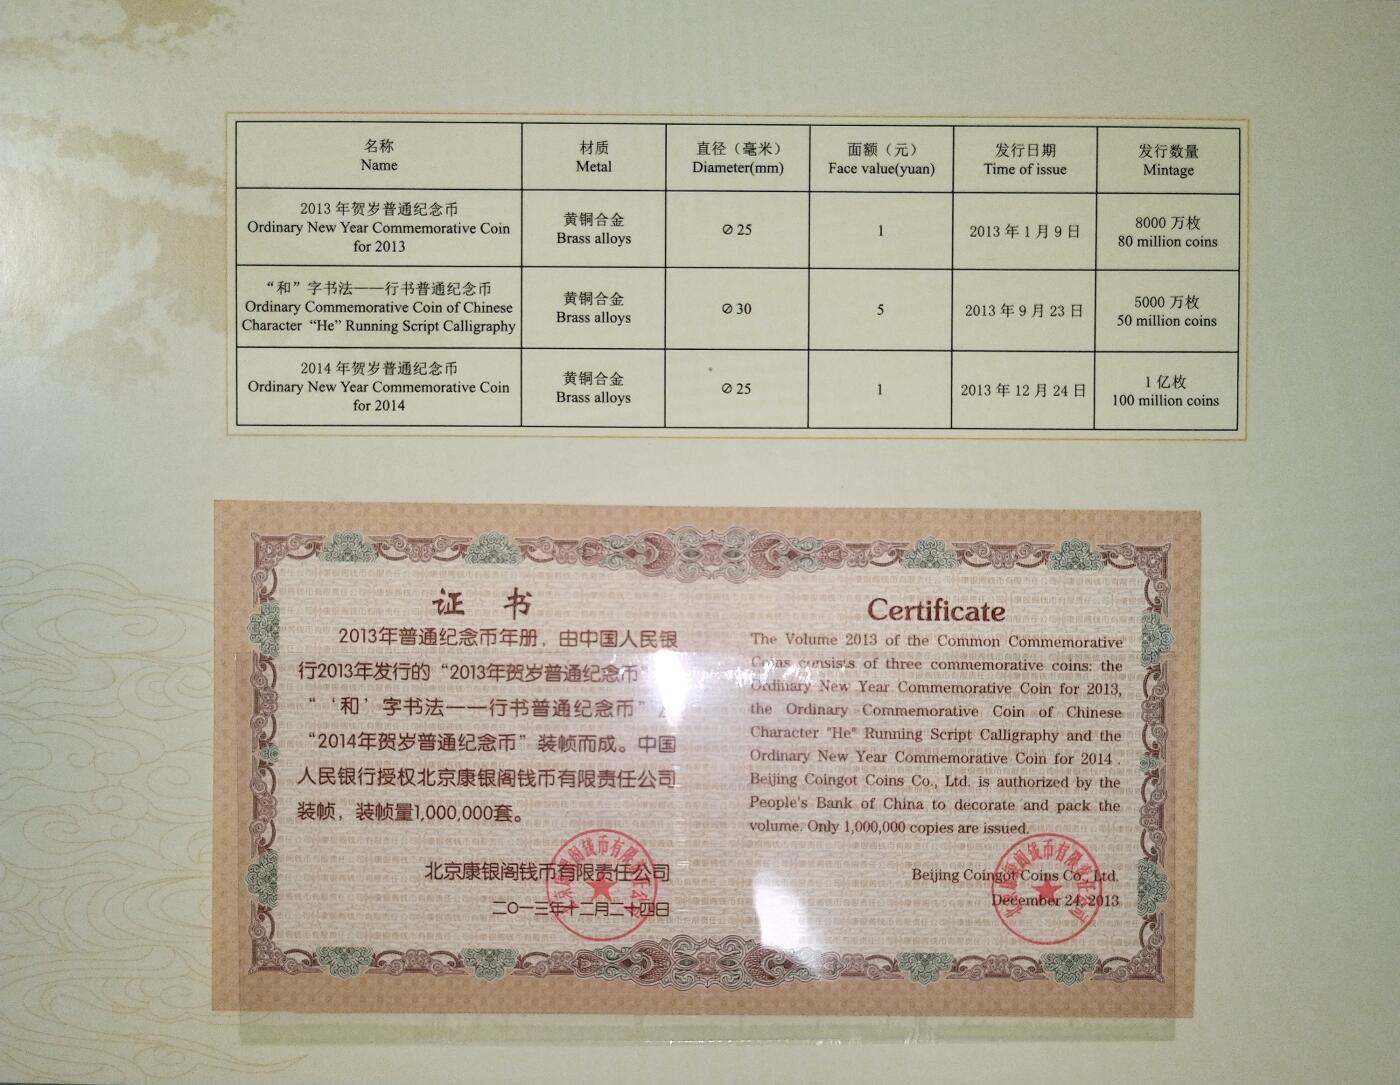 名称
Name
材质
Metal
直径（毫米）
Diameter(mm)
面额（元）
Face value(yuan)
发行日期
Time of issue
发行数量
Mintage
2013 年贺岁普通纪念币
Ordinary New Year Commemorative Coin
for 2013
黄铜合金
Brass alloys
⌀ 25
1
2013 年 1 月 9 日
8000 万枚
80 million coins
“和”字书法——行书普通纪念币
Ordinary Commemorative Coin of Chinese
Character “He” Running Script Calligraphy
黄铜合金
Brass alloys
⌀ 30
5
2013 年 9 月 23 日
5000 万枚
50 million coins
2014 年贺岁普通纪念币
Ordinary New Year Commemorative Coin
for 2014
黄铜合金
Brass alloys
⌀ 25
1
2013 年 12 月 24 日
1 亿枚
100 million coins
证 书
2013年普通纪念币年册，由中国人民银
行2013年发行的“2013年贺岁普通纪念币”
“‘和’字书法——行书普通纪念币”
“2014年贺岁普通纪念币”装帧而成。中国
人民银行授权北京康银阁钱币有限责任公司
装帧，装帧量1,000,000套。
北京康银阁钱币有限责任公司
二〇一三年十二月二十四日
Certificate
The Volume 2013 of the Common Commemorative
Coins consists of three commemorative coins: the
Ordinary New Year Commemorative Coin for 2013,
the Ordinary Commemorative Coin of Chinese
Character "He" Running Script Calligraphy and the
Ordinary New Year Commemorative Coin for 2014 .
Beijing Coingot Coins Co., Ltd. is authorized by the
People's Bank of China to decorate and pack the
volume. Only 1,000,000 copies are issued.
Beijing Coingot Coins Co., Ltd.
December 24, 2013